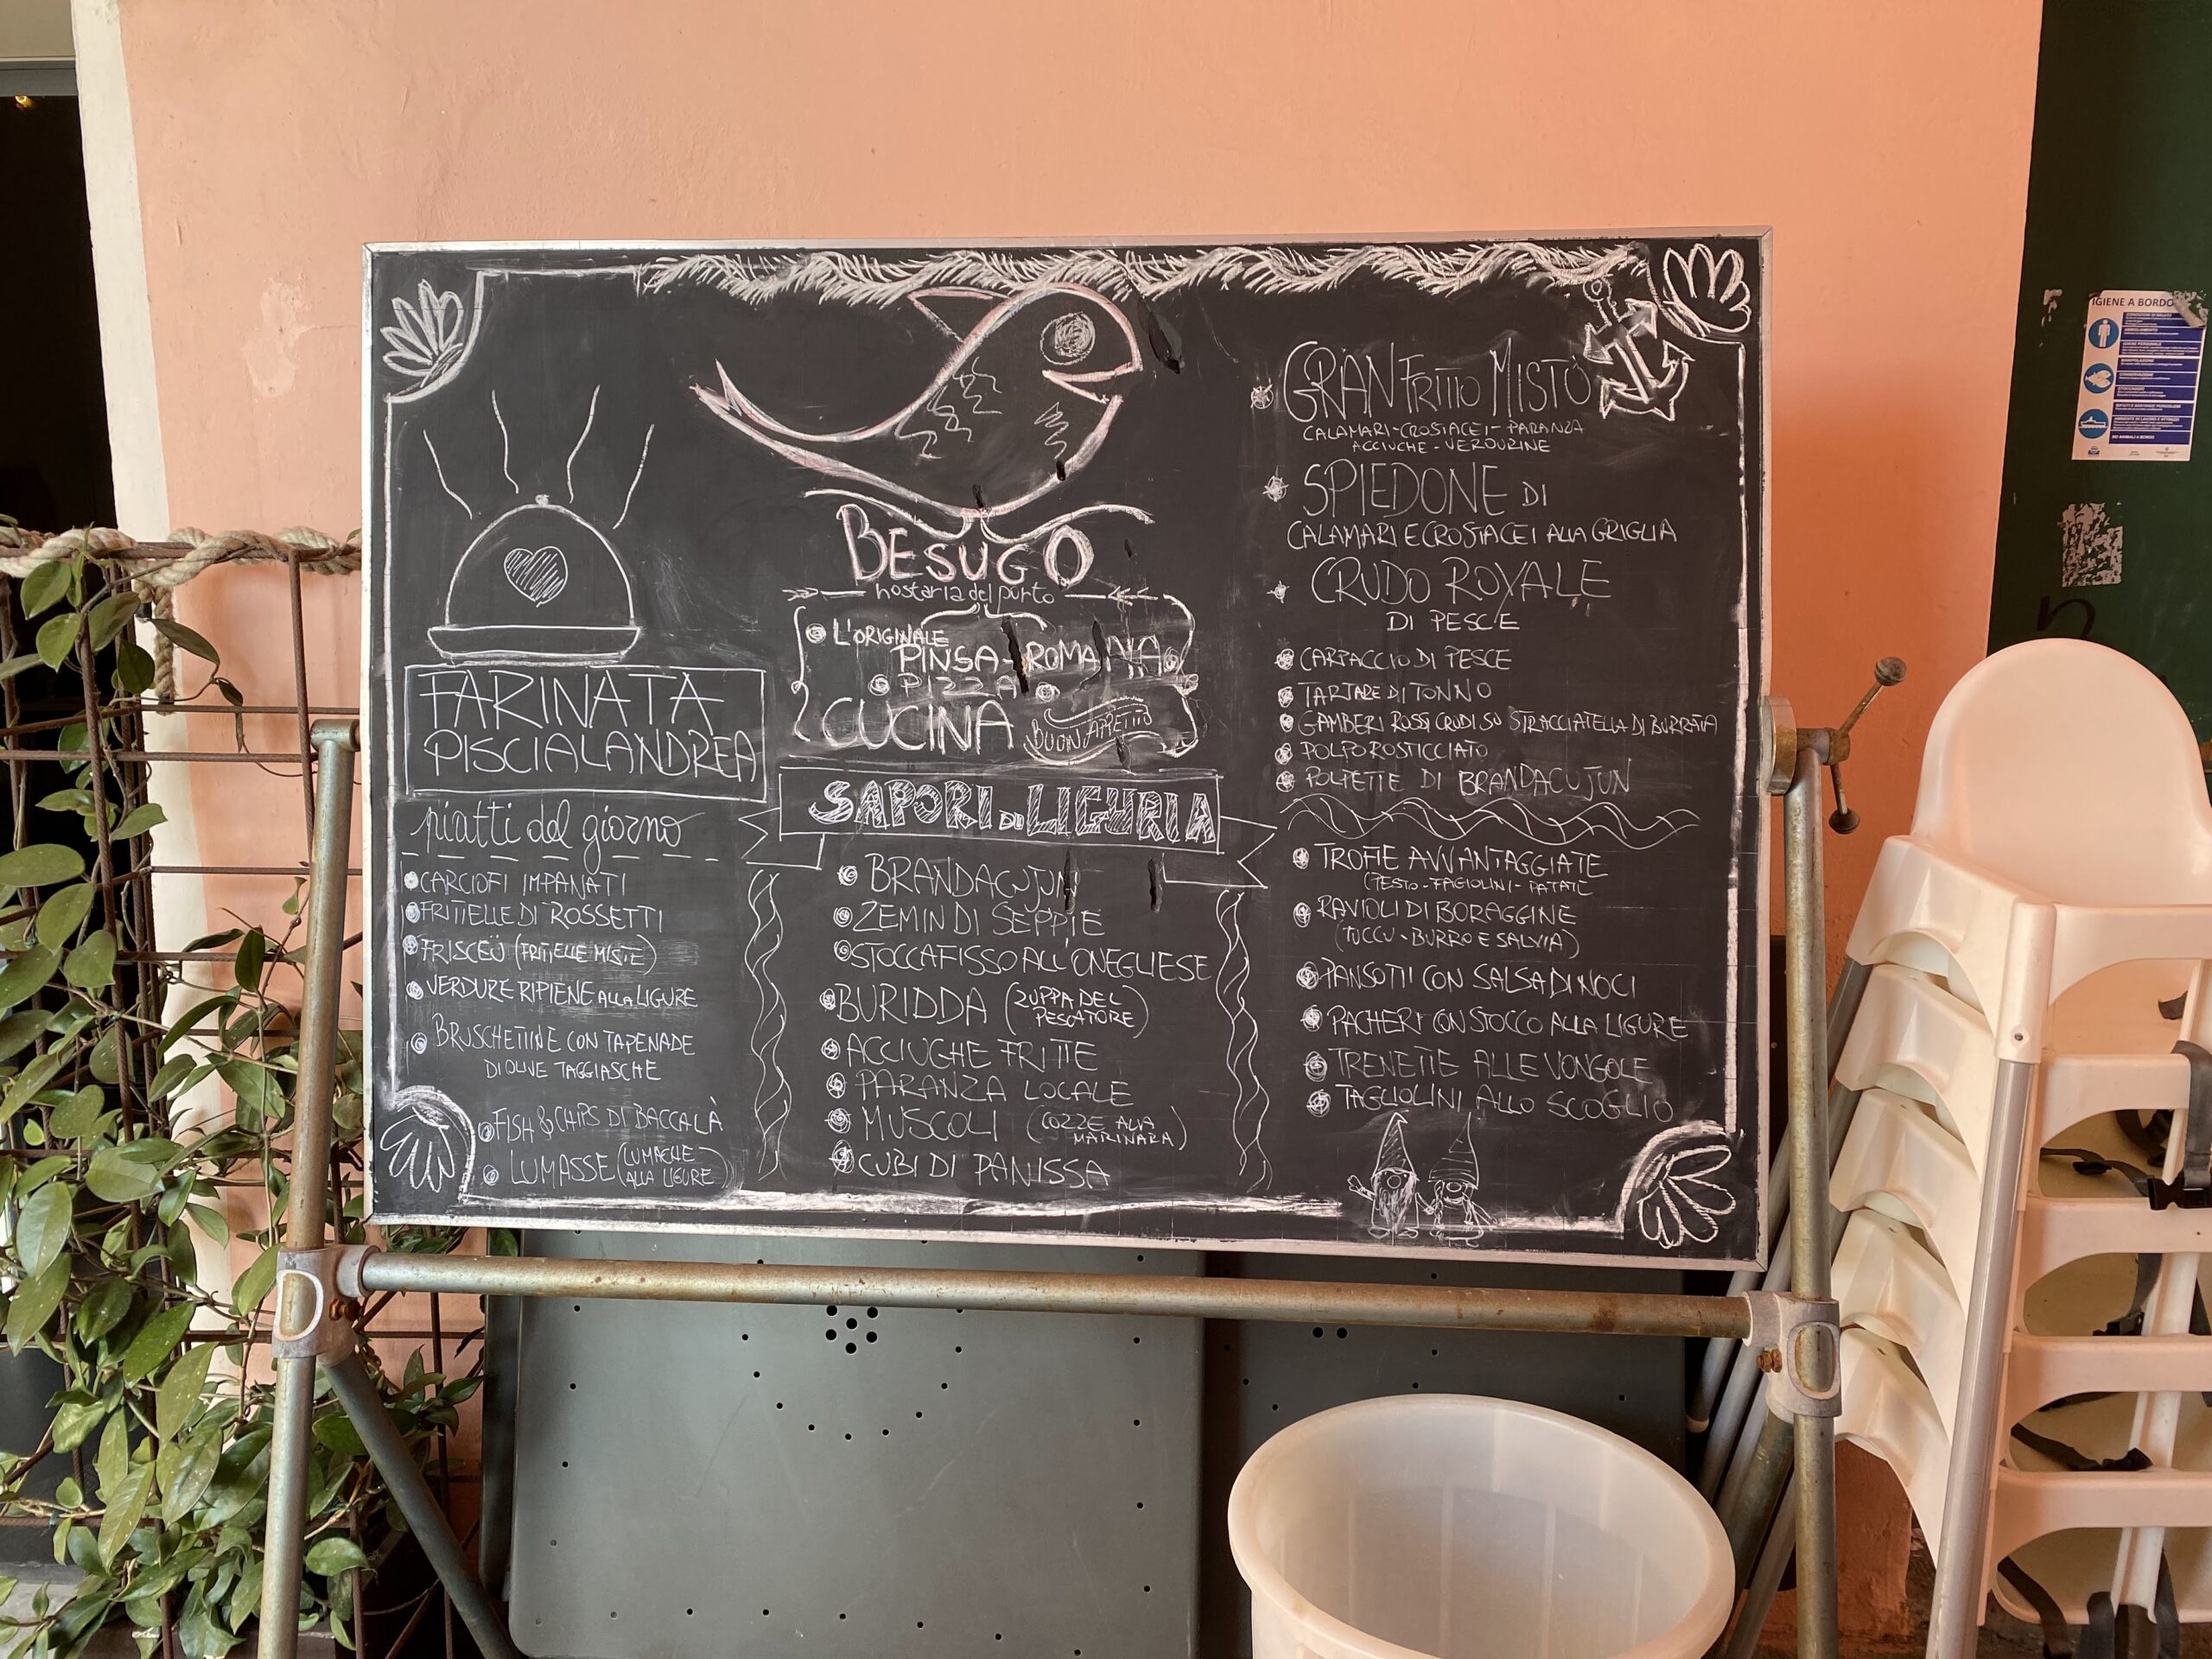 FARINATA
PISCIALANDREA
piatti del giorno
CARCIOFI IMPANATI
FRITTELLE DI ROSSETTI
FRISCEÜ (FRITTELLE MISTE)
VERDURE RIPIENE ALLA LIGURE
BRUSCHETTINE CON TAPENADE
DI OLIVE TAGGIASCHE
FISH & CHIPS DI BACCALÀ
LUMASSE (LUMACHE
ALLA LIGURE)
BESUGO
hostaria del porto
L'ORIGINALE
PINSA-ROMANA
PIZZA
CUCINA
BUON APPETITO
SAPORI DI LIGURIA
BRANDACUJUN
ZEMIN DI SEPPIE
STOCCAFISSO ALL'ONEGLIESE
BURIDDA (ZUPPA DEL
PESCATORE)
ACCIUGHE FRITTE
PARANZA LOCALE
MUSCOLI (COZZE ALLA
MARINARA)
CUBI DI PANISSA
GRAN FRITTO MISTO
CALAMARI-CROSTACEI-PARANZA
ACCIUGHE-VERDURINE
SPIEDONE DI
CALAMARI E CROSTACEI ALLA GRIGLIA
CRUDO ROYALE
DI PESCE
CARPACCIO DI PESCE
TARTARE DI TONNO
GAMBERI ROSSI CRUDI SU STRACCIATELLA DI BURRATA
POLPO ROSTICCIATO
POLPETTE DI BRANDACUJUN
TROFIE AVVANTAGGIATE
(PESTO-FAGIOLINI-PATATE
RAVIOLI DI BORAGGINE
(TUCCU-BURRO E SALVIA)
PANSOTTI CON SALSA DI NOCI
PACHERI CON STOCCO ALLA LIGURE
TRENETTE ALLE VONGOLE
TAGLIOLINI ALLO SCOGLIO
IGIENE A BORDO